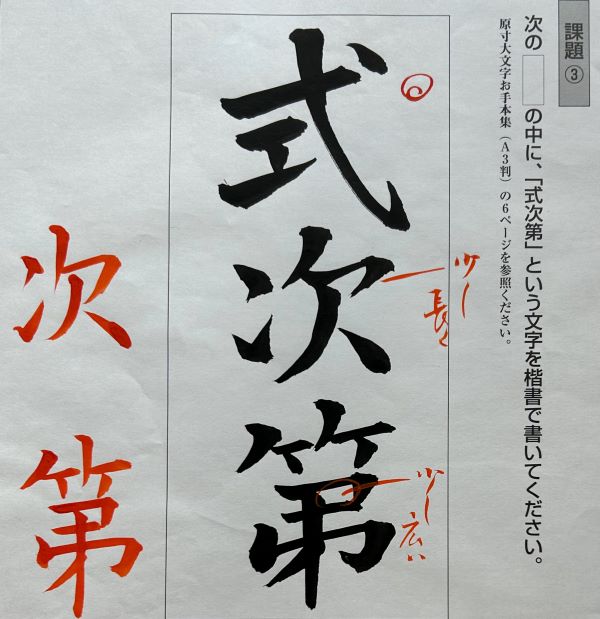 課題③
次の　の中に、「式次第」という文字を楷書で書いてください。
原寸大文字お手本集（A3判）の6ページを参照ください。
式次第
少し
長く
少し
広い
次
第